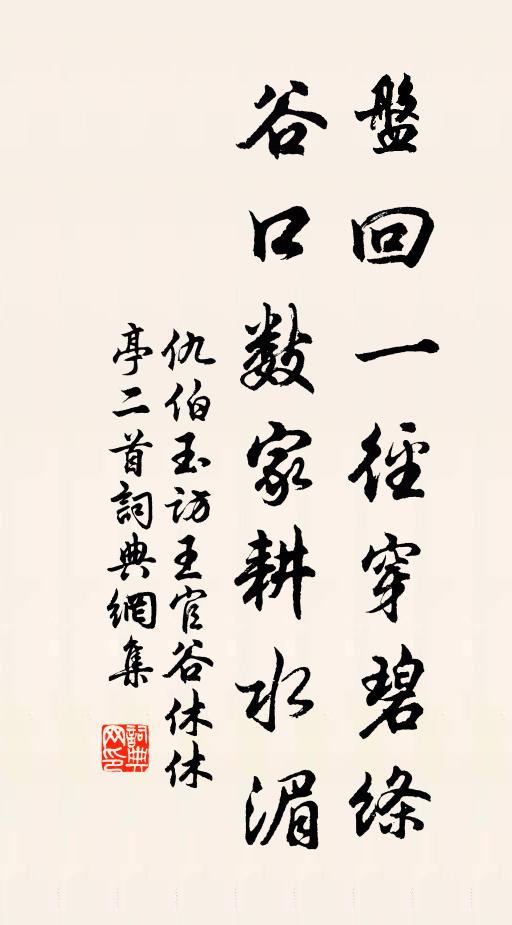 盤回一徑穿碧絛
谷口數家耕水湄
仇伯玉訪王官谷休休
亭二首詞典網集
詞典
网印